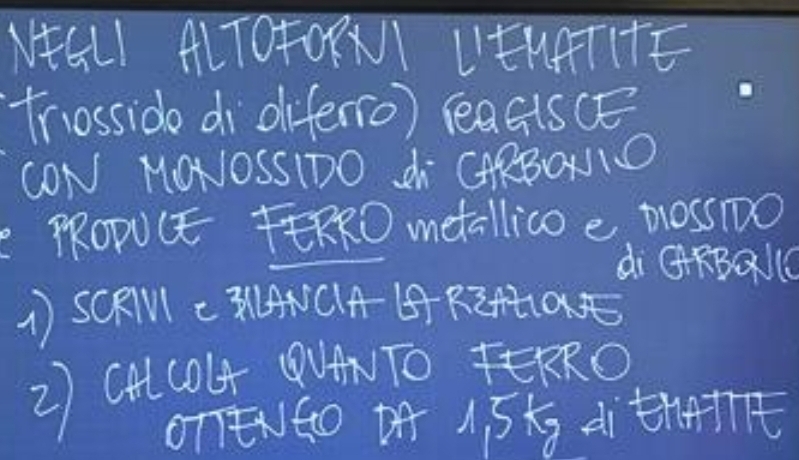 NEGLI ALTOFORNI L'EMATITE
(triossido di diferro) reAGISCE
CON MONOSSIDO di CARBONIO
e PRODUCE FERRO metallico e DIOSSIDO
di CARBONIO
1) SCRIVI e BILANCIA LA REAZIONE
2) CALCOLA QUANTO FERRO
OTTENGO DA 1,5 kg di EMATITE